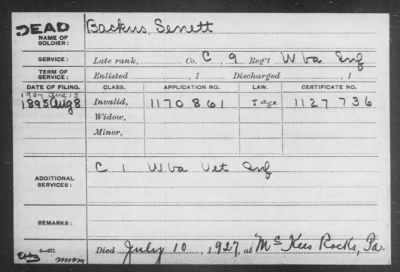 DEAD
NAME OF SOLDIER: Backus, Senett
SERVICE: Late rank, Co. C, 9 Reg't W Va Inf
TERM OF SERVICE: Enlisted , 1 Discharged , 1
DATE OF FILING. CLASS. APPLICATION NO. LAW. CERTIFICATE NO.
1895 Aug 8 Invalid, 1170861 1127736
Widow,
Minor,
ADDITIONAL SERVICES: C 1 W Va Vet Inf
REMARKS:
Died July 10, 1927, at McKees Rocks, Pa.